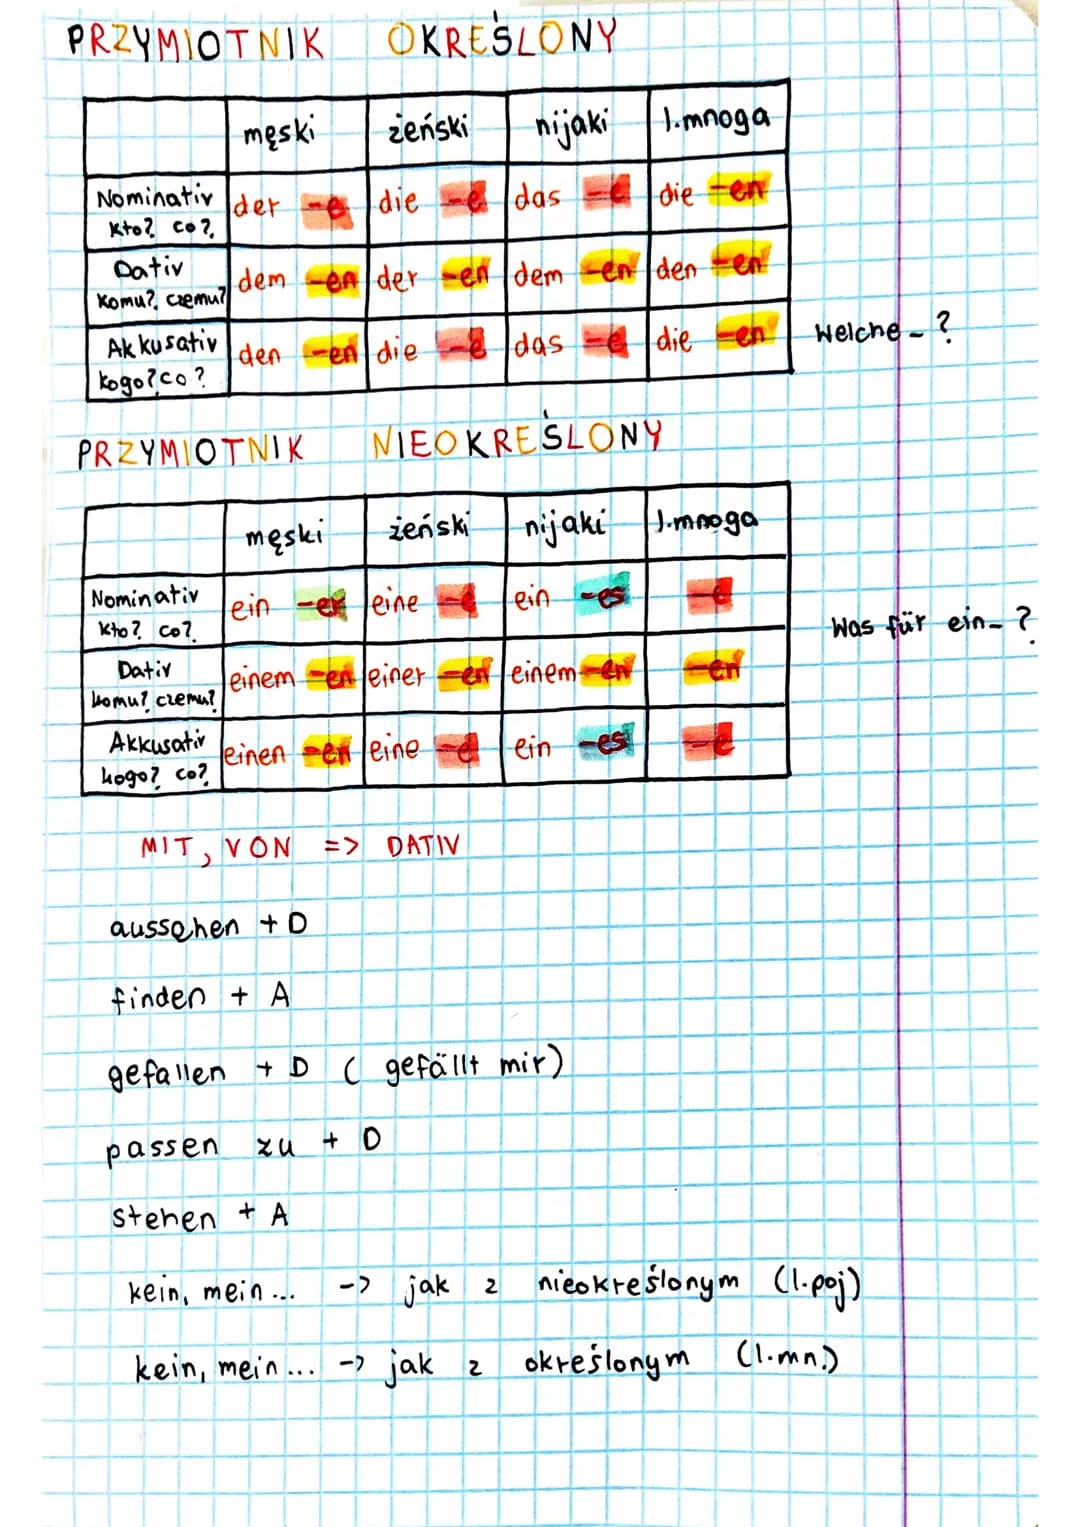 PRZYMIOTNIK OKREŚLONY
męski żeński nijaki l.mnoga
Nominativ kto? co? der -e die -e das -e die -en
Dativ komu? czemu? dem -en der -en dem -en den -en
Akkusativ kogo? co? den -en die -e das -e die -en
Welche - ?
PRZYMIOTNIK NIEOKREŚLONY
męski żeński nijaki l.mnoga
Nominativ kto? co? ein -er eine -e ein -es -e
Was für ein- ?
Dativ komu? czemu? einem -en einer -en einem -en -en
Akkusativ kogo? co? einen -en eine -e ein -es -e
MIT, VON => DATIV
aussehen + D
finden + A
gefallen + D ( gefällt mir)
passen zu + D
stehen + A
kein, mein... -> jak z nieokreślonym (l.poj)
kein, mein... -> jak z określonym (l.mn.)